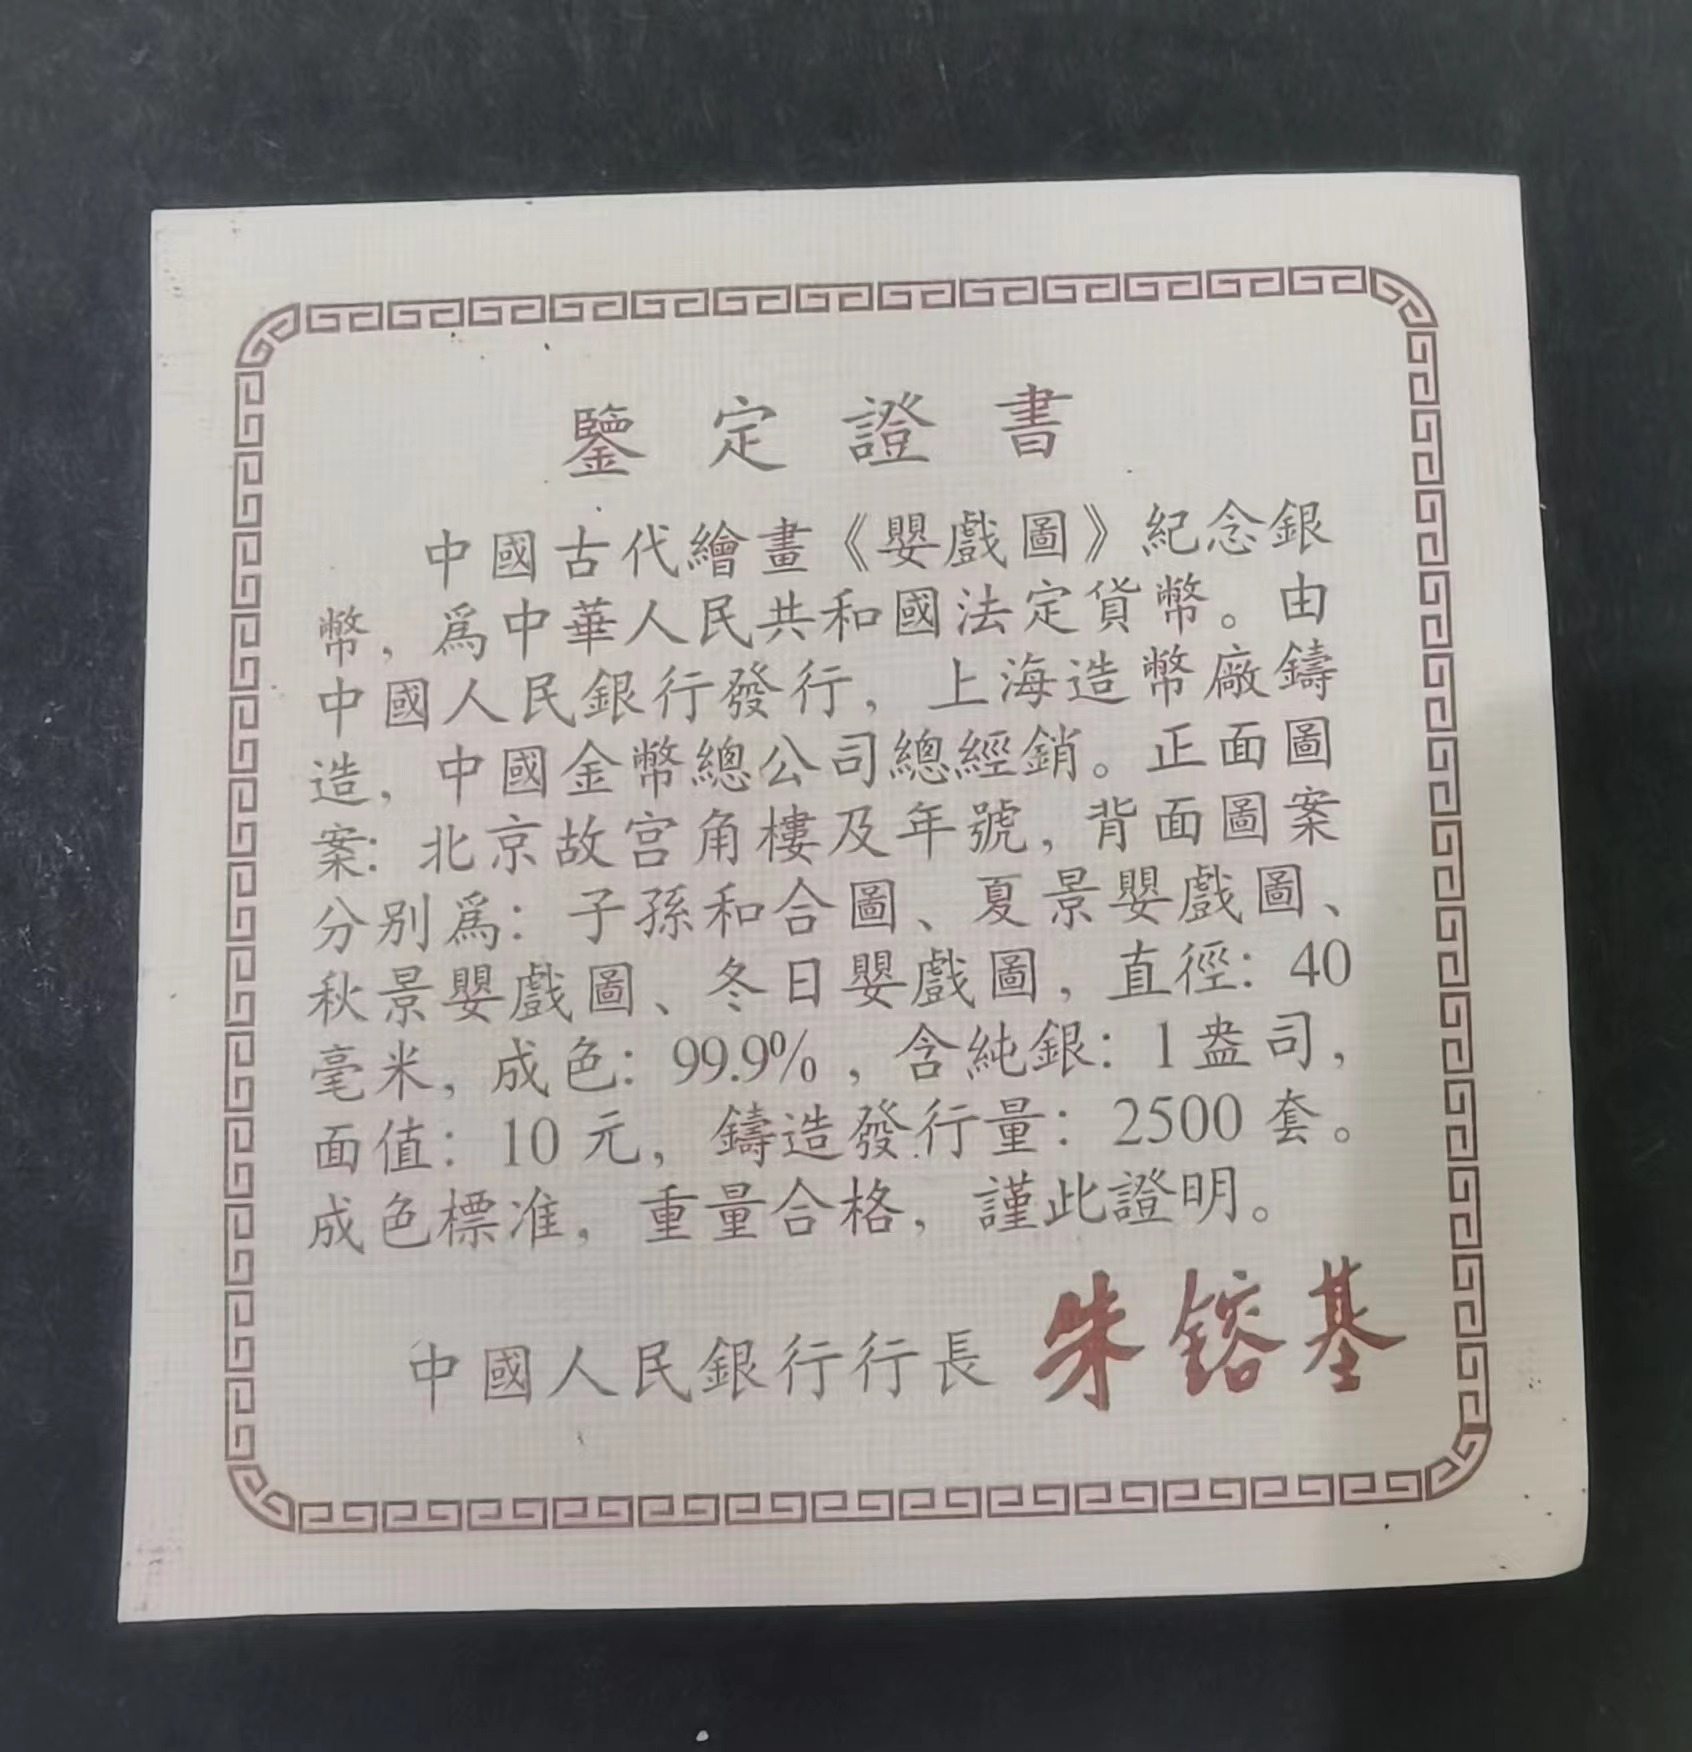 鑒定證書
中國古代繪畫《嬰戲圖》紀念銀
幣，爲中華人民共和國法定貨幣。由
中國人民銀行發行，上海造幣廠鑄
造，中國金幣總公司總經銷。正面圖
案：北京故宮角樓及年號，背面圖案
分別爲：子孫和合圖、夏景嬰戲圖、
秋景嬰戲圖、冬日嬰戲圖，直徑：40
毫米，成色：99.9%，含純銀：1盎司，
面值：10元，鑄造發行量：2500套。
成色標准，重量合格，謹此證明。
中國人民銀行行長 朱鎔基